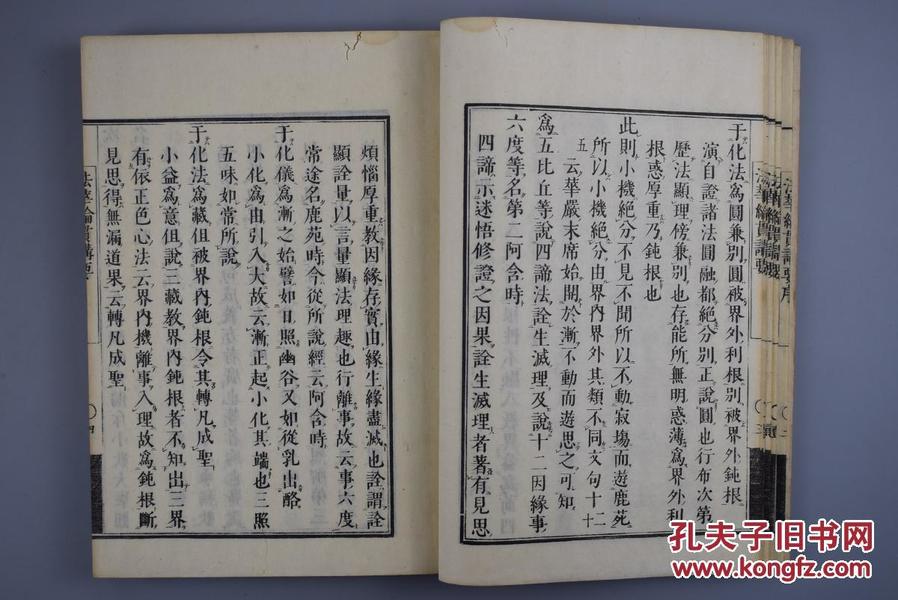 于化法爲圓兼別圓被界外利根別被界外鈍根
演自證諸法圓融都絕分別正說圓也行布次第
歷法顯理傍兼別也存能所無明惑薄爲界外利
根惑厚重乃鈍根也
此則小機絕分不見不聞所以不動寂場而遊鹿苑
所以小機絕分由界內界外其類不同文句十十二
五云華嚴末席始開於漸不動而遊思之可知
爲五比丘等說四諦法詮生滅理及說十二因緣事
六度等名第二阿含時
四諦示迷悟修證之因果詮生滅理者著有見思
煩惱厚重教因緣存實由緣生緣盡滅也詮謂詮
顯詮量以言量顯法理趣也行離事故云事六度
常途名鹿苑時今從所說經云阿含時
于化儀爲漸之始譬如日照幽谷又如從乳出酪
小化爲由引入大故云漸正起小化其端也三照
五味如常所說
于化法爲藏但被界內鈍根令其轉凡成聖
小益爲意但說三藏教界內鈍根者不知出三界
有依正色心法云界內機離事入理故爲鈍根斷
見思得無漏道果云轉凡成聖
法華綸貫講要
〇四
孔夫子旧书网
www.kongfz.com